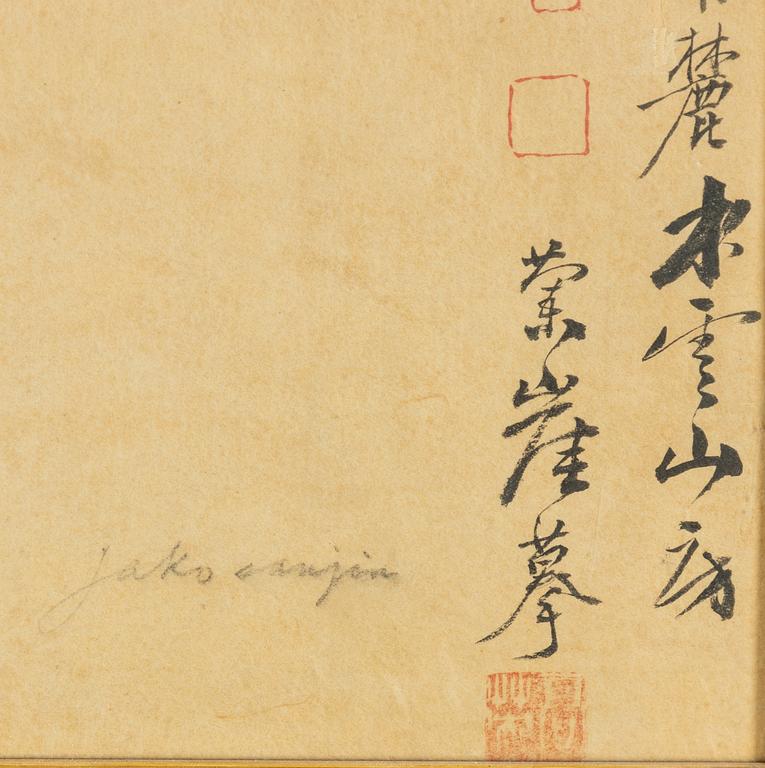 麓木雲山房
榮崖摹
Jako sanjin